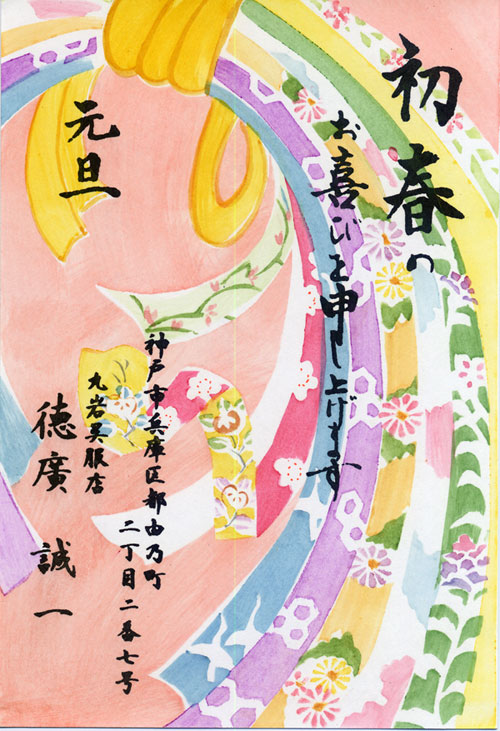 初春の
お喜びを申し上げます
元旦
神戸市兵庫区都由乃町
二丁目二番七号
丸岩呉服店
徳廣誠一